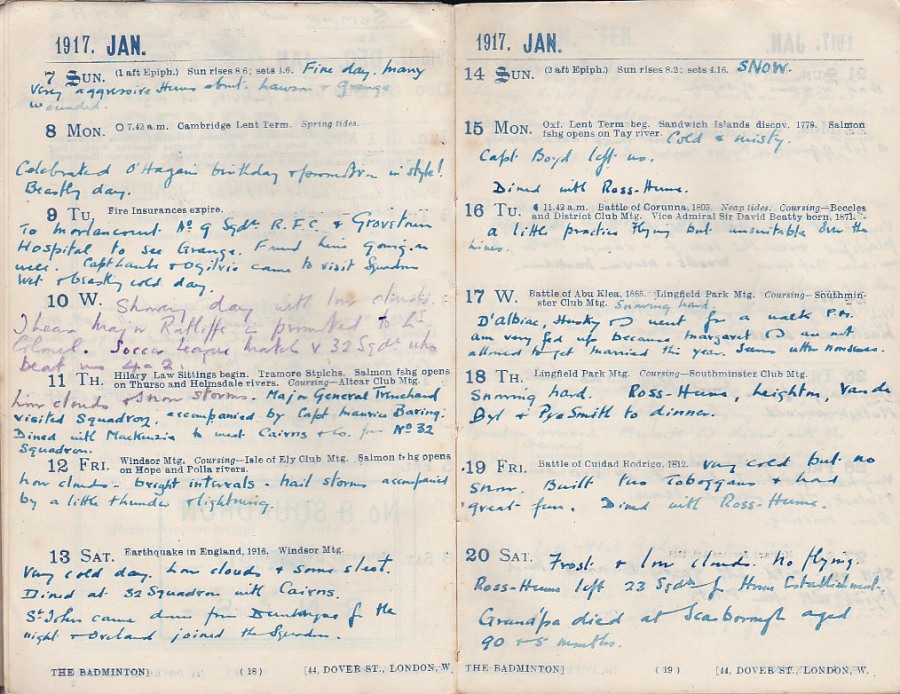 1917. JAN.
7 SUN. (1 aft Epiph.) Sun rises 8.6; sets 4.6. Fine day. Many
very aggressive Huns about. Lawson & Grange
wounded.
8 MON. 7.42 a.m. Cambridge Lent Term. Spring tides.
Celebrated O'Hagan birthday & promotion in style!
Beastly day.
9 TU. Fire Insurances expire.
To Morlancourt No 9 Sqdn R.F.C. & Grovetown
Hospital to see Grange. Found him going on
well. Capt and Ogilvie came to visit Squadron
Wet & beastly cold day.
10 W. Showery day with low clouds.
I hear Major Ratliffe is promoted to Lt
Colonel. Soccer League match v 32 Sqdn who
beat us 4-2.
11 TH. Hilary Law Sittings begin. Tramore Stplchs. Salmon fshg opens
on Thurso and Helmsdale rivers. Coursing—Altcar Club Mtg.
Low clouds & snow storms. Major General Trenchard
visited Squadron, accompanied by Capt Maurice Baring.
Dined with Mackenzie to meet Cairns & Co. from No 32
Squadron.
12 FRI. Windsor Mtg. Coursing—Isle of Ely Club Mtg. Salmon fshg opens
on Hope and Polla rivers.
Low clouds - bright intervals. Hail storms accompanied
by a little thunder & lightning.
13 SAT. Earthquake in England, 1916. Windsor Mtg.
Very cold day. Low clouds & some sleet.
Dined at 32 Squadron with Cairns.
St John came down from Dunkerque for the
night & Oreland joined the Squadron.
THE BADMINTON] (18) [44, DOVER ST., LONDON, W.
1917. JAN.
14 SUN. (2 aft Epiph.) Sun rises 8.2; sets 4.16. SNOW.
15 MON. Oxf. Lent Term beg. Sandwich Islands discov. 1778. Salmon
fshg opens on Tay river. Cold & misty.
Capt. Boyd left us.
Dined with Ross-Hume.
16 TU. 11.42 a.m. Battle of Corunna, 1809. Neap tides. Coursing—Beccles
and District Club Mtg. Vice Admiral Sir David Beatty born, 1871.
a little practice flying but unsuitable over the
lines.
17 W. Battle of Abu Klea, 1885. Lingfield Park Mtg. Coursing—Southmin-
ster Club Mtg. Snowing hard.
D'Albiac, Husky & I went for a walk P.M.
am very fed up because Margaret & I are not
allowed to get married this year. Seems utter nonsense.
18 TH. Lingfield Park Mtg. Coursing—Southminster Club Mtg.
Snowing hard. Ross-Hume, Leighton, Vande
Byl & Pye Smith to dinner.
19 FRI. Battle of Cuidad Rodrigo, 1812. Very cold but no
snow. Built two toboggans & had
great fun. Dined with Ross-Hume.
20 SAT. Frost & low clouds. No flying.
Ross-Hume left 23 Sqdn for Home Establishment.
Grandpa died at Scarborough aged
90 & 5 months.
THE BADMINTON] (19) [44, DOVER ST., LONDON, W.